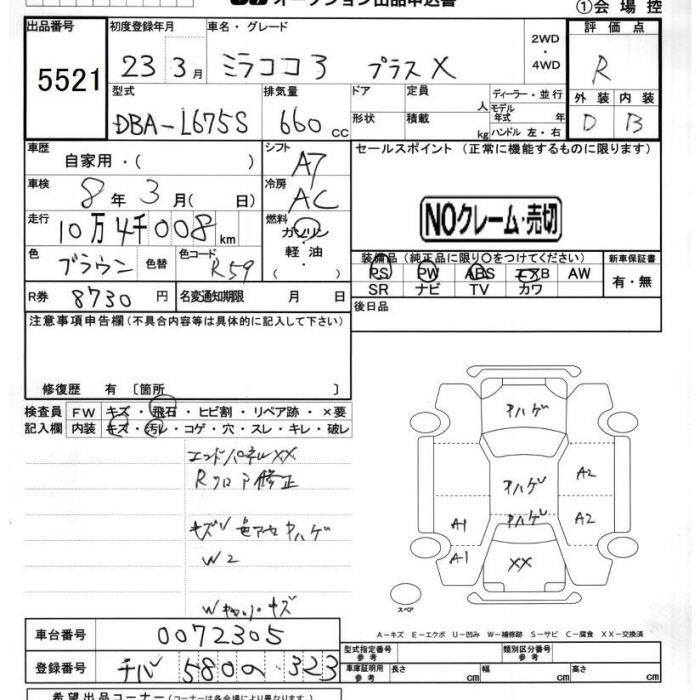 オークション出品申込書 ①会場控
出品番号 初度登録年月 車名・グレード 2WD・4WD 評価点
5521 23年3月 ミラココア プラスX R
型式 排気量 ドア 定員 人 ディーラー・並行 外装 内装
DBA-L675S 660cc モデル年式 年 D B
形状 積載 kg ハンドル 左・右
車歴 シフト セールスポイント (正常に機能するものに限ります)
自家用・( ) A7
車検 冷房
8年3月( 日) AC
NOクレーム・売切
走行 燃料
10万4千008km ガソリン
軽油
( )
色 色替 色コード 装備品 (純正品に限り○をつけてください) 新車保証書
ブラウン R59 PS PW ABS エアB AW 有・無
SR ナビ TV カワ
R券 8730円 名変通知期限 月 日 後日品
注意事項申告欄 (不具合内容等は具体的に記入して下さい)
修復歴 有 〔箇所 〕
検査員 FW キズ・飛石・ヒビ割・リペア跡・×要
記入欄 内装 キズ・汚レ・コゲ・穴・スレ・キレ・破レ
エンドパネルXX
Rフロア修正
キズ 色アセ ヤハゲ
W2
Wキャリパーキズ
ヤハゲ
ヤハゲ A2
ヤハゲ A2
A1
A1 XX
スペア
車台番号 0072305
A-キズ E-エクボ U-凹み W-補修跡 S-サビ C-腐食 XX-交換済
型式指定番号 参考 類別区分番号 参考
登録番号 チバ 580 の 323
車庫証明用 参考 長さ cm 幅 cm 高さ cm
希望出品コーナー (コーナーは各会場により異なります)